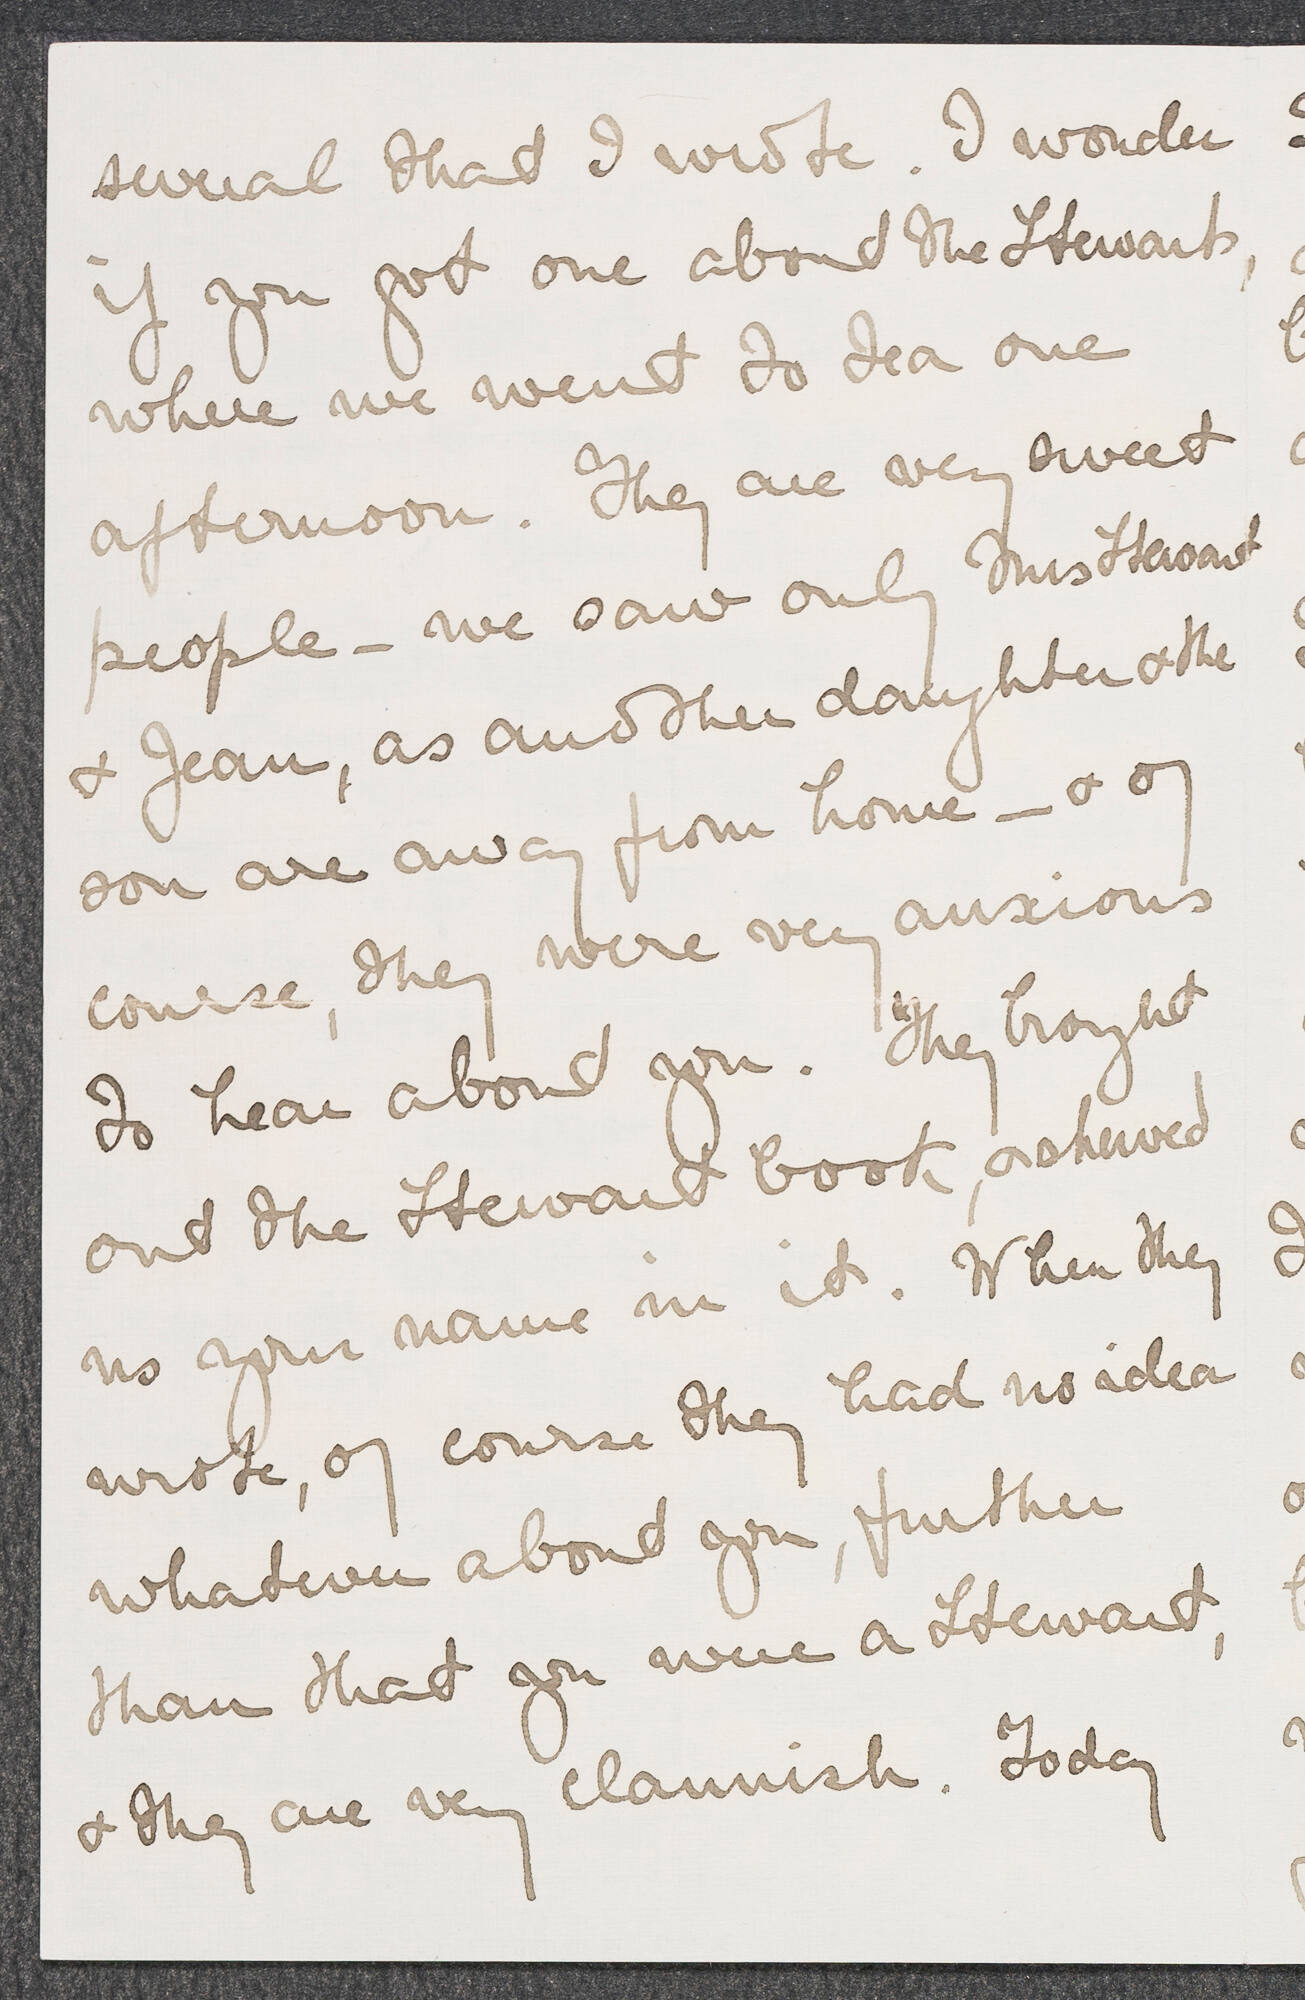 several that I wrote. I wonder
if you got one about the Stewarts,
where we went to tea one
afternoon. They are very sweet
people - we saw only Mrs Stewart
& Jean, as another daughter & the
son are away from home - & of
course, they were very anxious
to hear about you. They brought
out the Stewart book, & shewed
us your name in it. When they
wrote, of course they had no idea
whatever about you, further
than that you were a Stewart,
& they are very clannish. Today